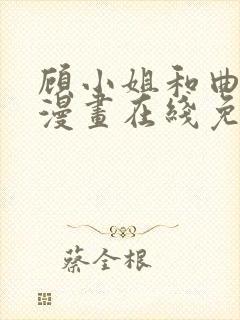 顾小姐和曲
漫畫在綫免
蔡全根